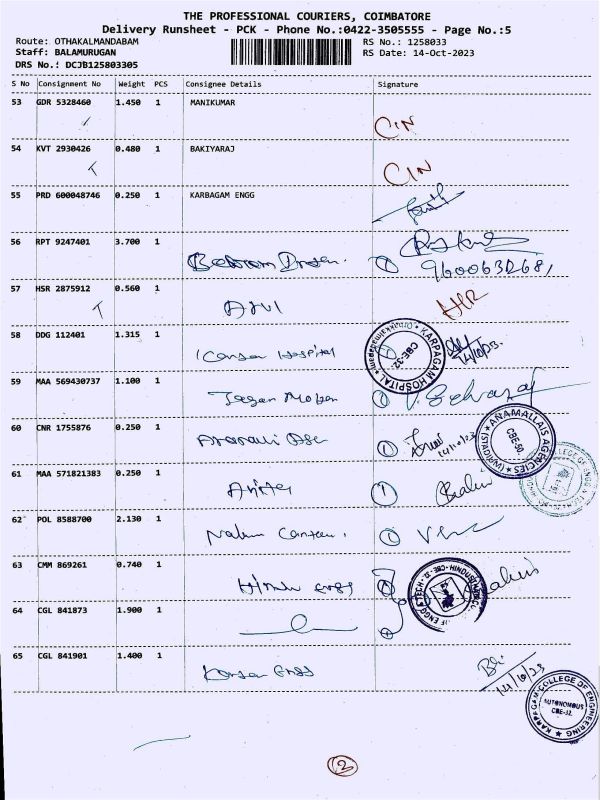 THE PROFESSIONAL COURIERS, COIMBATORE
Delivery Runsheet - PCK - Phone No.:0422-3505555 - Page No.:5
Route: OTHAKALMANDABAM RS No.: 1258033
Staff: BALAMURUGAN RS Date: 14-Oct-2023
DRS No.: DCJB125803305
S No Consignment No Weight PCS Consignee Details Signature
53 GDR 5328460 1.450 1 MANIKUMAR
CIN
54 KVT 2930426 0.480 1 BAKIYARAJ
CIN
55 PRD 600048746 0.250 1 KARBAGAM ENGG
56 RPT 9247401 3.700 1
9600632681
57 HSR 2875912 0.560 1
Arul
58 DDG 112401 1.315 1
Hospital KARPAGAM HOSPITAL CBE-32. 14/10/23.
59 MAA 569430737 1.100 1
Jagan Mohan 1
60 CNR 1755876 0.250 1
1 14/10/23 ANAMALLAIS AGENCIES CBE-50.
61 MAA 571821383 0.250 1
1 COLLEGE OF ENGG
62 POL 8588700 2.130 1
Canteen. 1
63 CMM 869261 0.740 1
engg
64 CGL 841873 1.900 1
65 CGL 841901 1.400 1
Engg 14/10/23
KARPAGAM COLLEGE OF ENGINEERING AUTONOMOUS CBE-32.
2